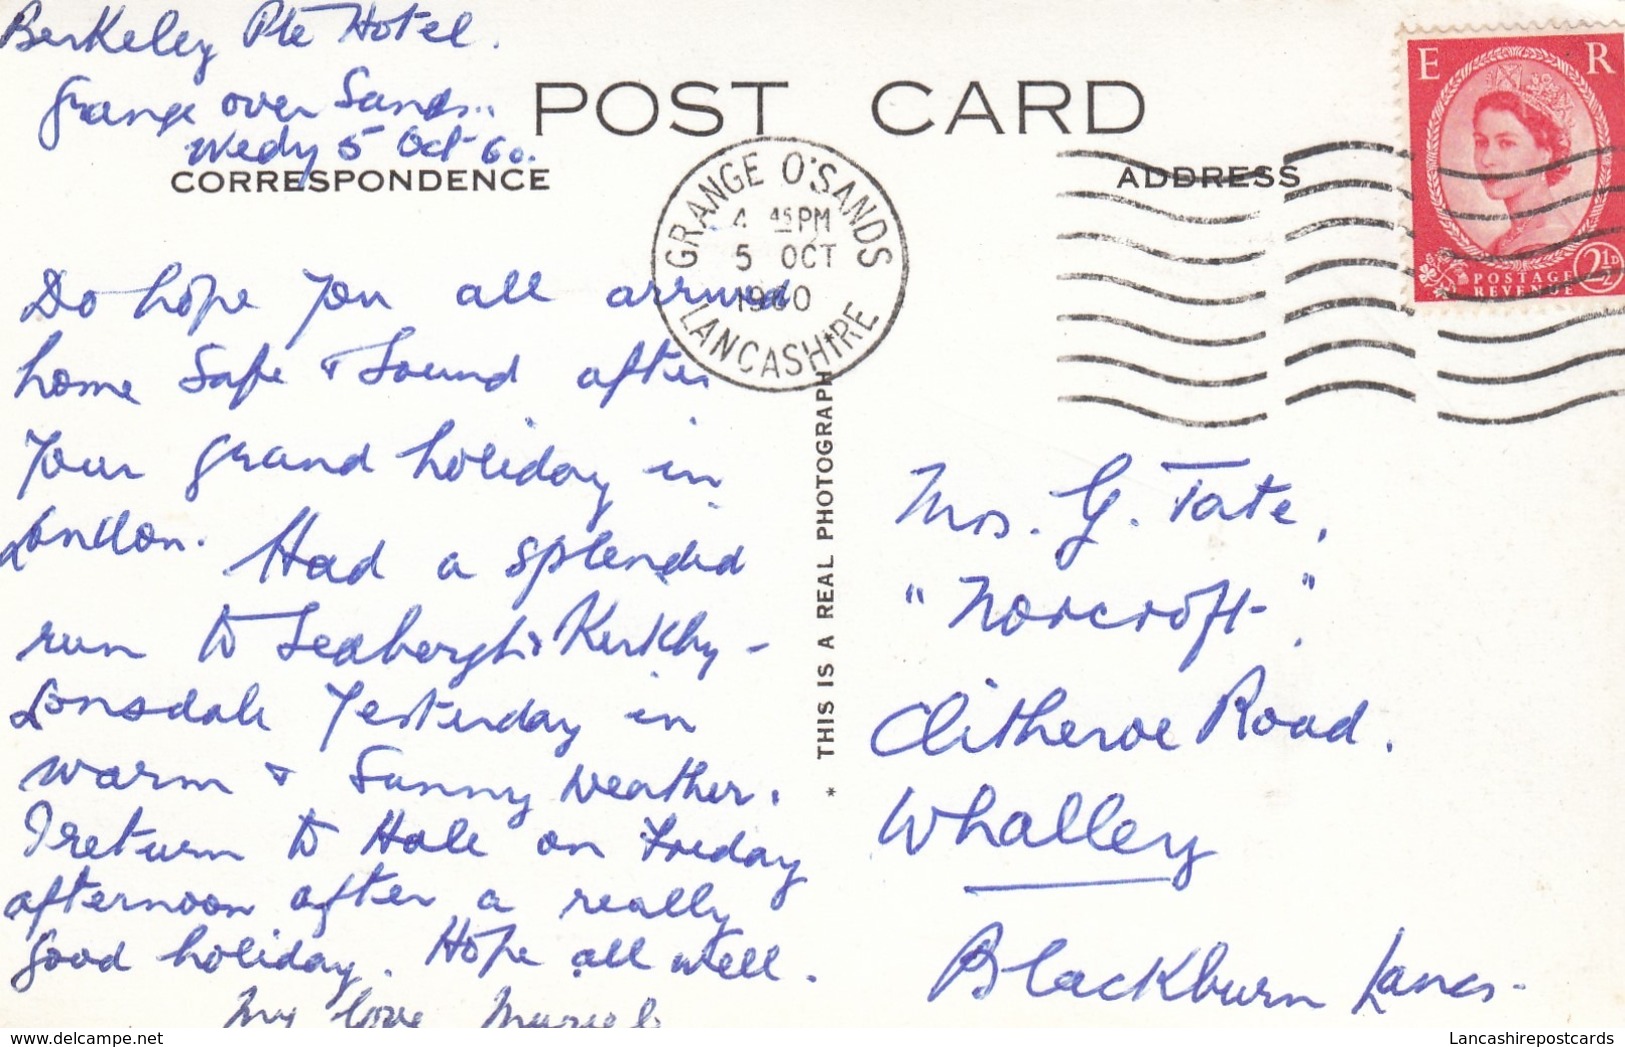 Berkeley Pte Hotel.
Grange over Sands..
Wedy 5 Oct 60.
POST CARD
CORRESPONDENCE
ADDRESS
GRANGE O'SANDS
4 45 PM
5 OCT
1960
LANCASHIRE
E R
POSTAGE
REVENUE
2½D
Do hope you all arrived
home safe & sound after
your grand holiday in
London. Had a splended
run to Seabergh & Kirkby-
Lonsdale yesterday in
warm & sunny weather.
I return to Hale on Friday
afternoon after a really
good holiday. Hope all well.
My love Muriel
* THIS IS A REAL PHOTOGRAPH *
Mrs. G. Tate,
"Norcroft",
Clitheroe Road.
Whalley
Blackburn Lancs.
Lancashirepostcards
delcampe.net